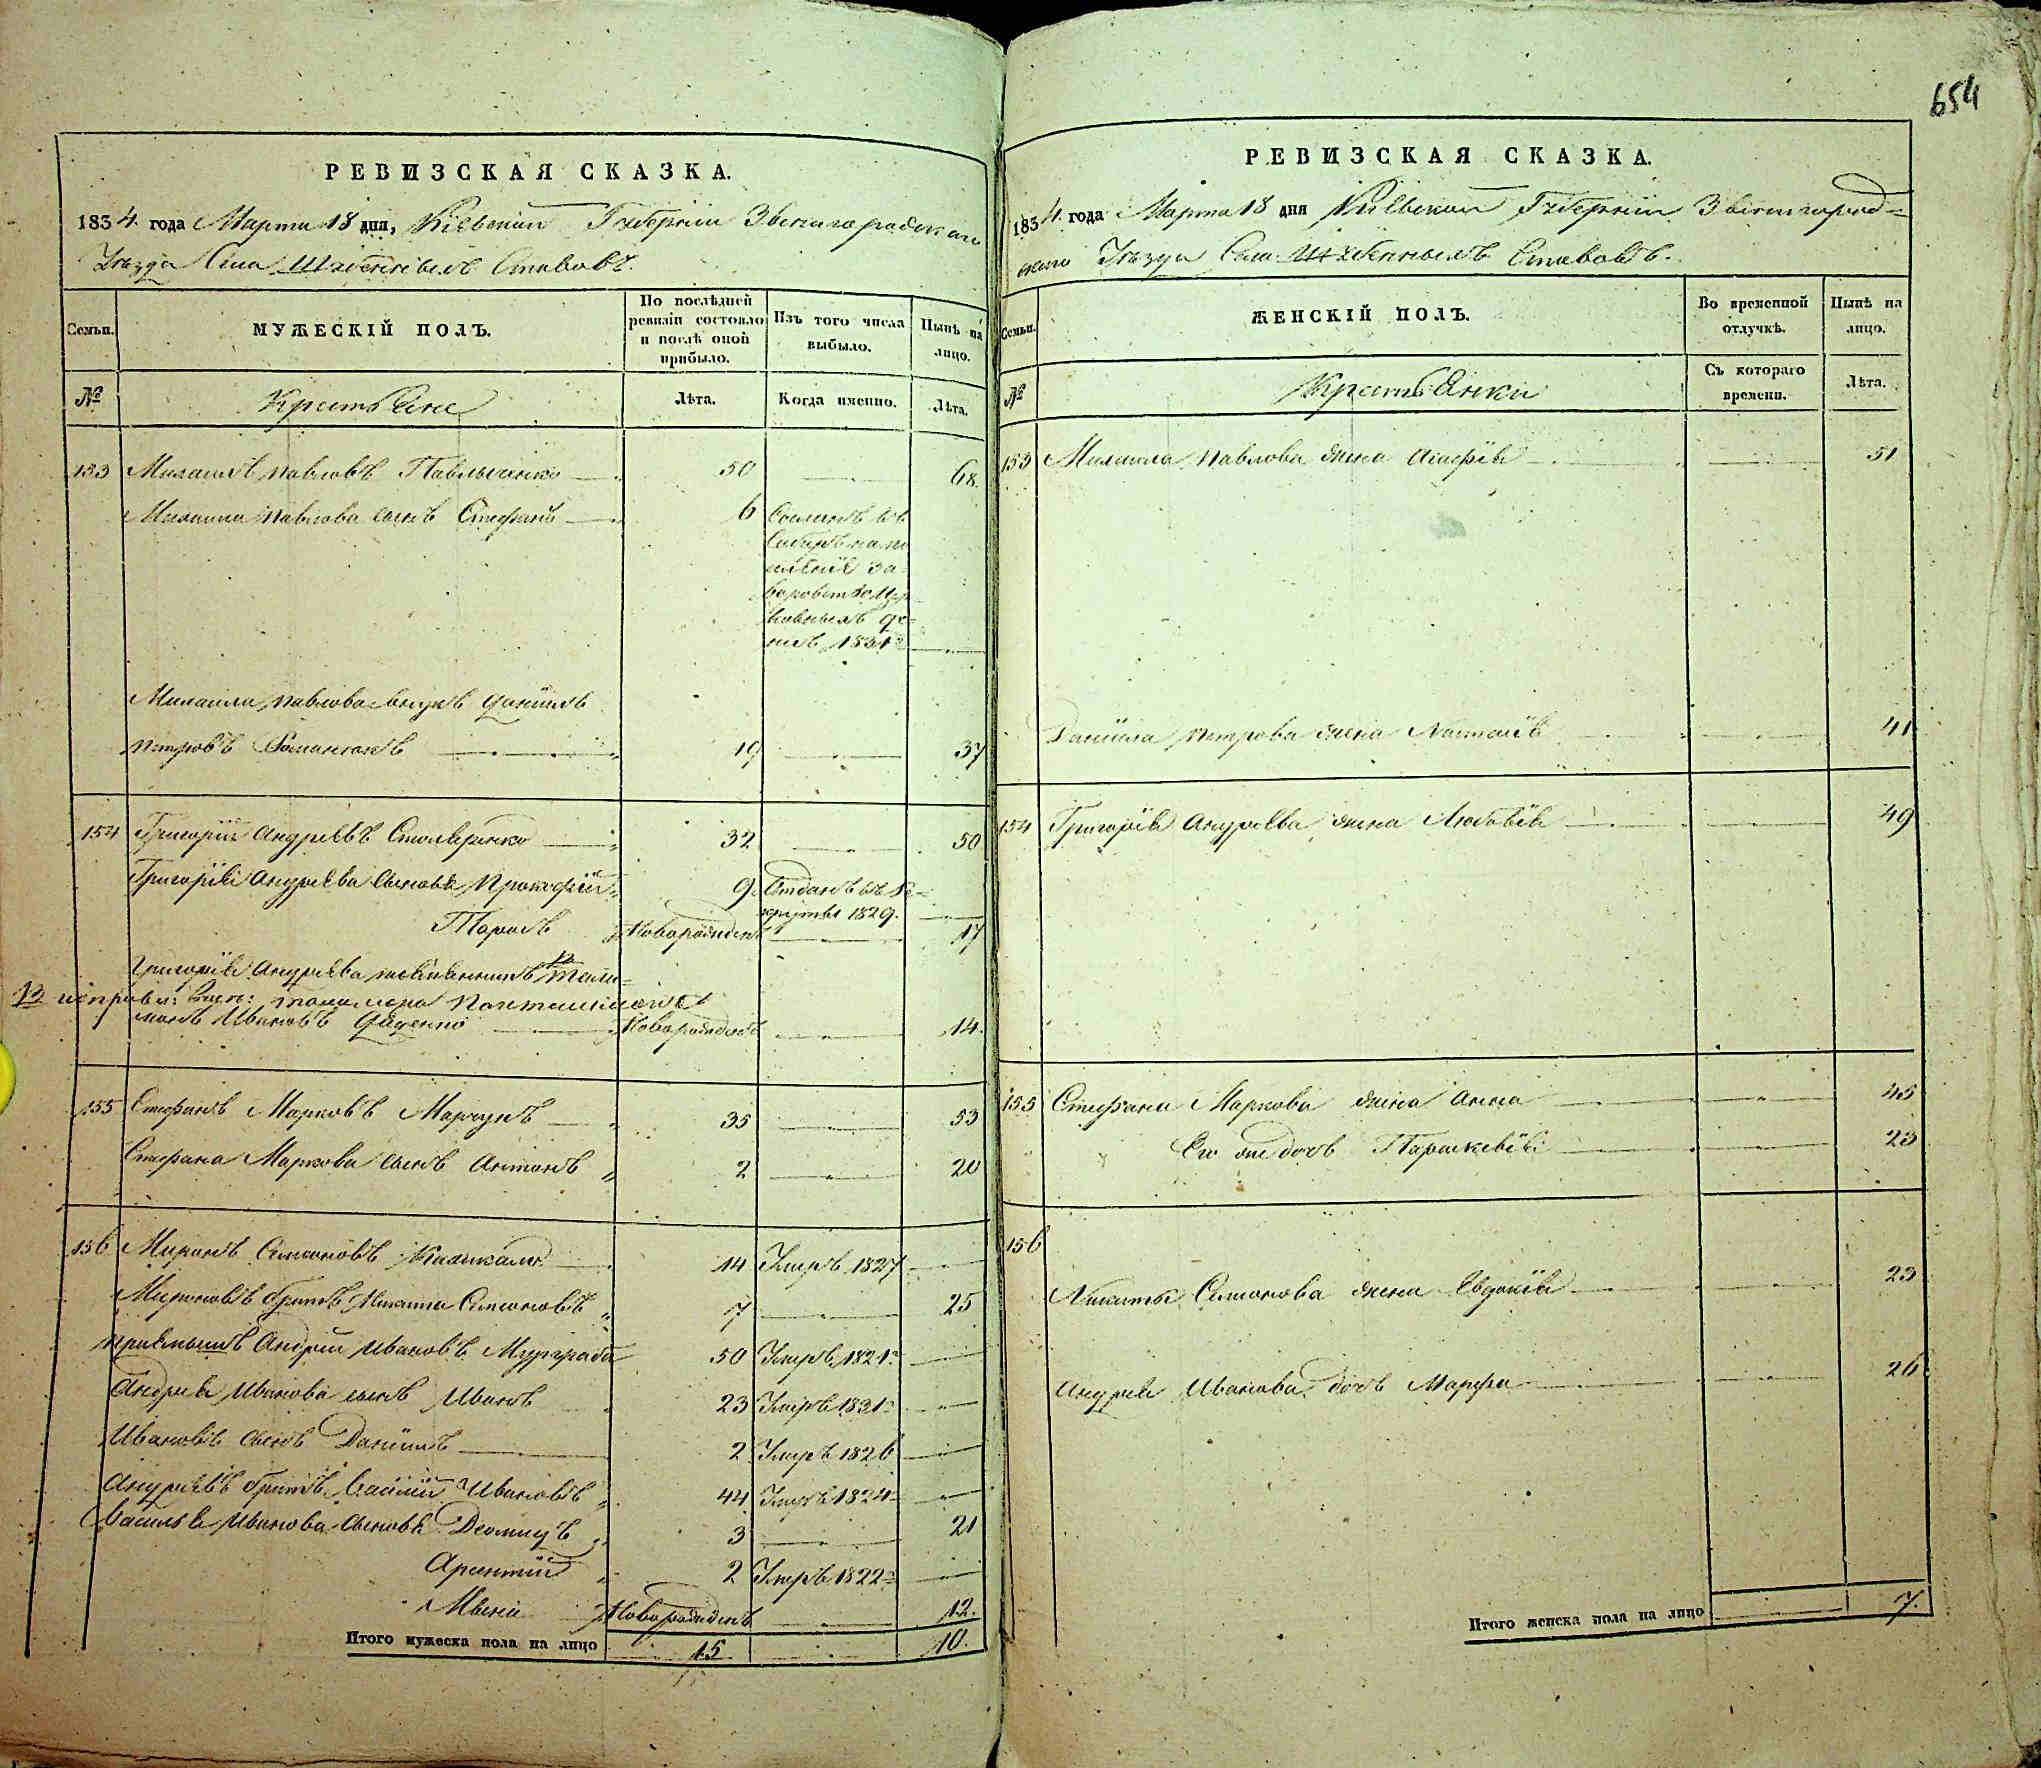 654
РЕВИЗСКАЯ СКАЗКА.
1834. года Марта 18 дня, Кіевской Губерніи Звенигородскаго
Уѣзда Села Шубенныхъ Ставовъ.
Семьи. МУЖЕСКІЙ ПОЛЪ. По послѣдней ревизіи состояло и послѣ оной прибыло. Изъ того числа выбыло. Нынѣ на лицо.
№ Крестьяне Лѣта. Когда именно. Лѣта.
153 Михаилъ Павловъ Павлыченко 50 68.
Михаила Павлова сынъ Стефанъ 6 Сосланъ въ
Сибирь на по
селеніе за
воровство Цер
ковныхъ де
негъ 1831
Михаила Павлова внукъ Даніилъ
Петровъ 19 37
154 Григорій Андреевъ Столяренко 32 50
Григорія Андреева сыновья Прокофій 9 Отданъ въ Ре
круты 1829.
Тарасъ Новорожденъ 17
Григорія Андреева племянникъ
12 исправл:
Ивановъ Діденко Новорожденъ 14.
155 Стефанъ Марковъ Марчукъ 35 53
Стефана Маркова сынъ Антонъ 2 20
156 Миронъ Симоновъ 14 Умръ 1827
Мироновъ братъ Никита Симоновъ 7 25
Пріемышъ Андрей Ивановъ 50 Умръ 1821
Андрея Иванова сынъ Иванъ 23 Умръ 1831
Ивановъ сынъ Даніилъ 2 Умръ 1826
Андреевъ братъ Василій Ивановъ 44 Умръ 1824
Василья Иванова сыновья Деомидъ 3 21
Арсентій 2 Умръ 1822
Новорожденъ 12.
Итого мужеска пола на лицо 15 10.
РЕВИЗСКАЯ СКАЗКА.
1834. года Марта 18 дня Кіевской Губерніи Звенигород=
скаго Уѣзда Села Шубенныхъ Ставовъ.
Семьи. ЖЕНСКІЙ ПОЛЪ. Во временной отлучкѣ. Нынѣ на лицо.
№ Крестьянки Съ котораго времени. Лѣта.
153 Михаила Павлова жена Агафія 51
Даніила Петрова жена Настасія 41
154 Григорія Андреева жена Любовія 49
155 Стефана Маркова жена Анна 45
Его же дочь Параскевія 23
156
Никиты Симонова жена Евдокія 23
Андрея Иванова дочь Марфа 26
Итого женска пола на лицо 7.